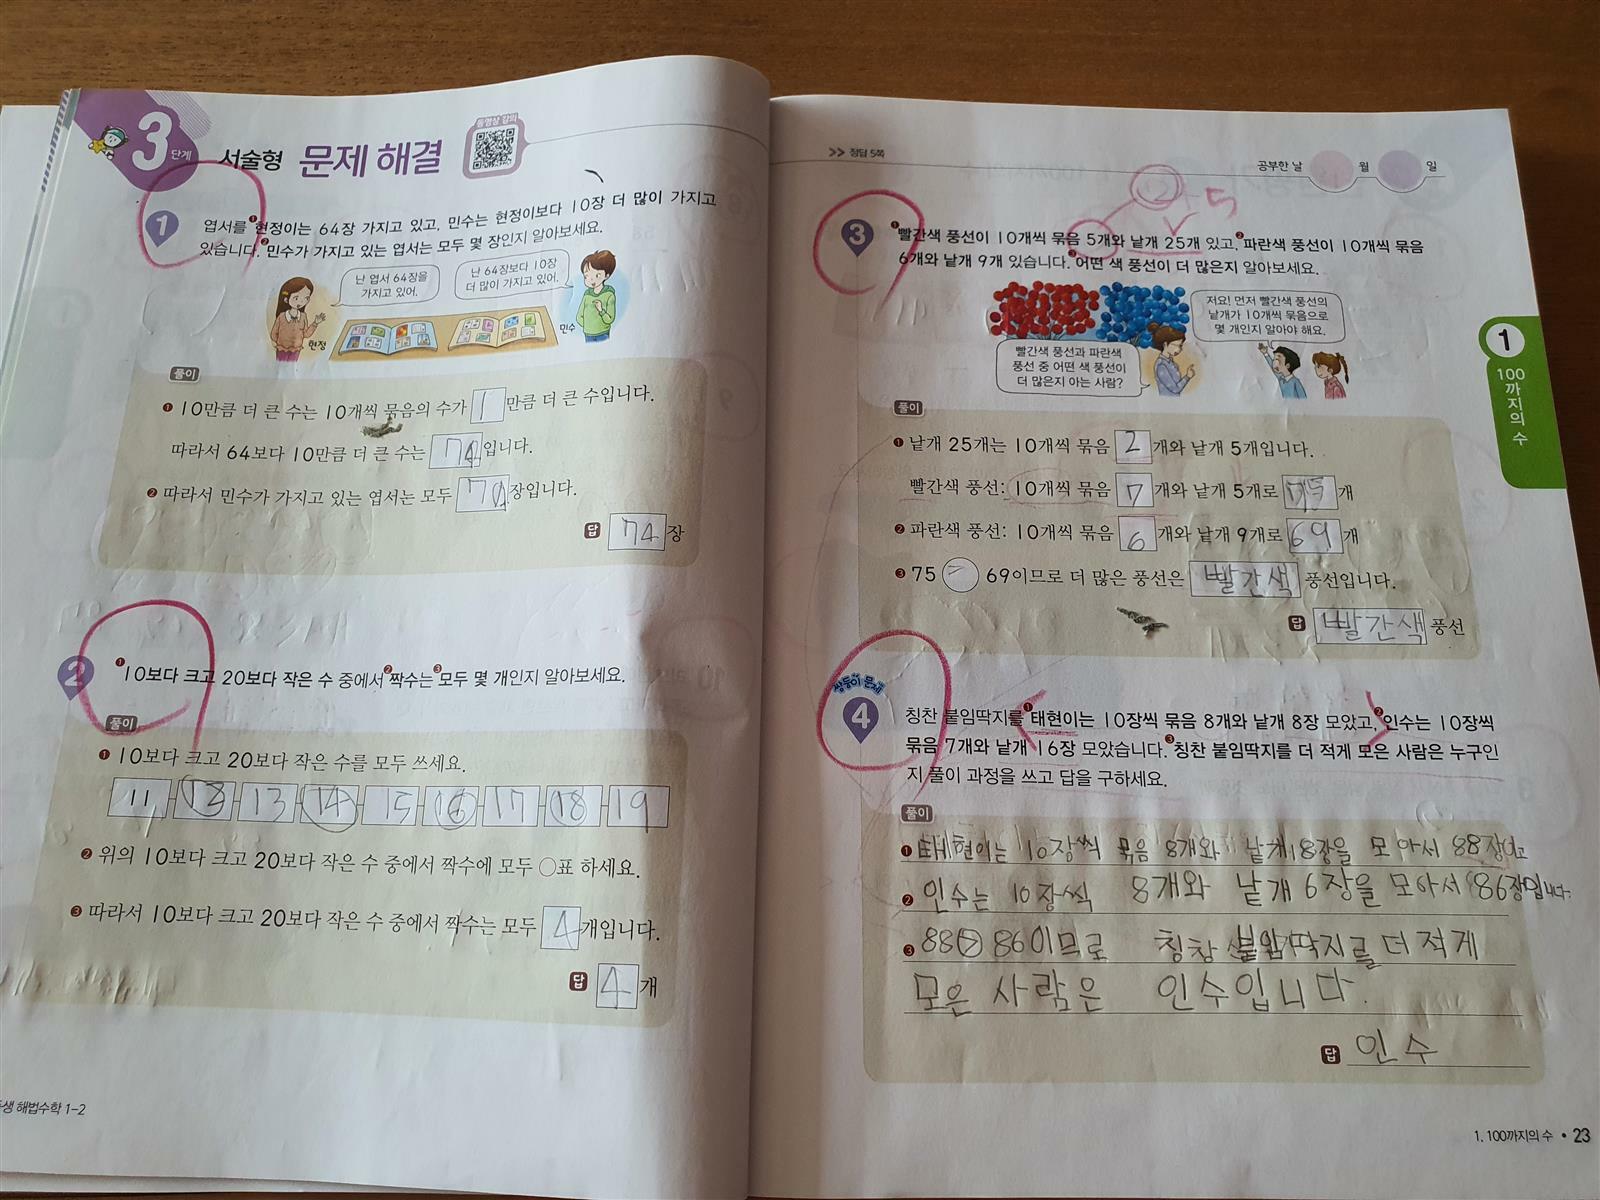 3단계
서술형 문제 해결
동영상 강의
1
엽서를 ❶현정이는 64장 가지고 있고, 민수는 현정이보다 10장 더 많이 가지고
있습니다. ❷민수가 가지고 있는 엽서는 모두 몇 장인지 알아보세요.
난 엽서 64장을
가지고 있어.
난 64장보다 10장
더 많이 가지고 있어.
현정
민수
풀이
❶ 10만큼 더 큰 수는 10개씩 묶음의 수가 1 만큼 더 큰 수입니다.
따라서 64보다 10만큼 더 큰 수는 74 입니다.
❷ 따라서 민수가 가지고 있는 엽서는 모두 74 장입니다.
답 74 장
2
❶10보다 크고 20보다 작은 수 중에서 ❷짝수는 ❸모두 몇 개인지 알아보세요.
풀이
❶ 10보다 크고 20보다 작은 수를 모두 쓰세요.
11 - 12 - 13 - 14 - 15 - 16 - 17 - 18 - 19
❷ 위의 10보다 크고 20보다 작은 수 중에서 짝수에 모두 ○표 하세요.
❸ 따라서 10보다 크고 20보다 작은 수 중에서 짝수는 모두 4 개입니다.
답 4 개
생 해법수학 1-2
>> 정답 5쪽
공부한 날 월 일
2 5
3
❶빨간색 풍선이 10개씩 묶음 5개와 낱개 25개 있고, ❷파란색 풍선이 10개씩 묶음
6개와 낱개 9개 있습니다. ❸어떤 색 풍선이 더 많은지 알아보세요.
저요! 먼저 빨간색 풍선의
낱개가 10개씩 묶음으로
몇 개인지 알아야 해요.
빨간색 풍선과 파란색
풍선 중 어떤 색 풍선이
더 많은지 아는 사람?
풀이
❶ 낱개 25개는 10개씩 묶음 2 개와 낱개 5개입니다.
빨간색 풍선: 10개씩 묶음 7 개와 낱개 5개로 75 개
❷ 파란색 풍선: 10개씩 묶음 6 개와 낱개 9개로 69 개
❸ 75 > 69이므로 더 많은 풍선은 빨간색 풍선입니다.
답 빨간색 풍선
쌍둥이 문제
4
칭찬 붙임딱지를 ❶태현이는 10장씩 묶음 8개와 낱개 8장 모았고, ❷인수는 10장씩
묶음 7개와 낱개 16장 모았습니다. ❸칭찬 붙임딱지를 더 적게 모은 사람은 누구인
지 풀이 과정을 쓰고 답을 구하세요.
풀이
❶ 태현이는 10장씩 묶음 8개와 낱개 8장을 모아서 88장이고
❷ 인수는 10장씩 8개와 낱개 6장을 모아서 86장입니다.
❸ 88 > 86이므로 칭찬 붙임딱지를 더 적게
모은 사람은 인수입니다.
답 인수
1
100까지의 수
1. 100까지의 수 • 23